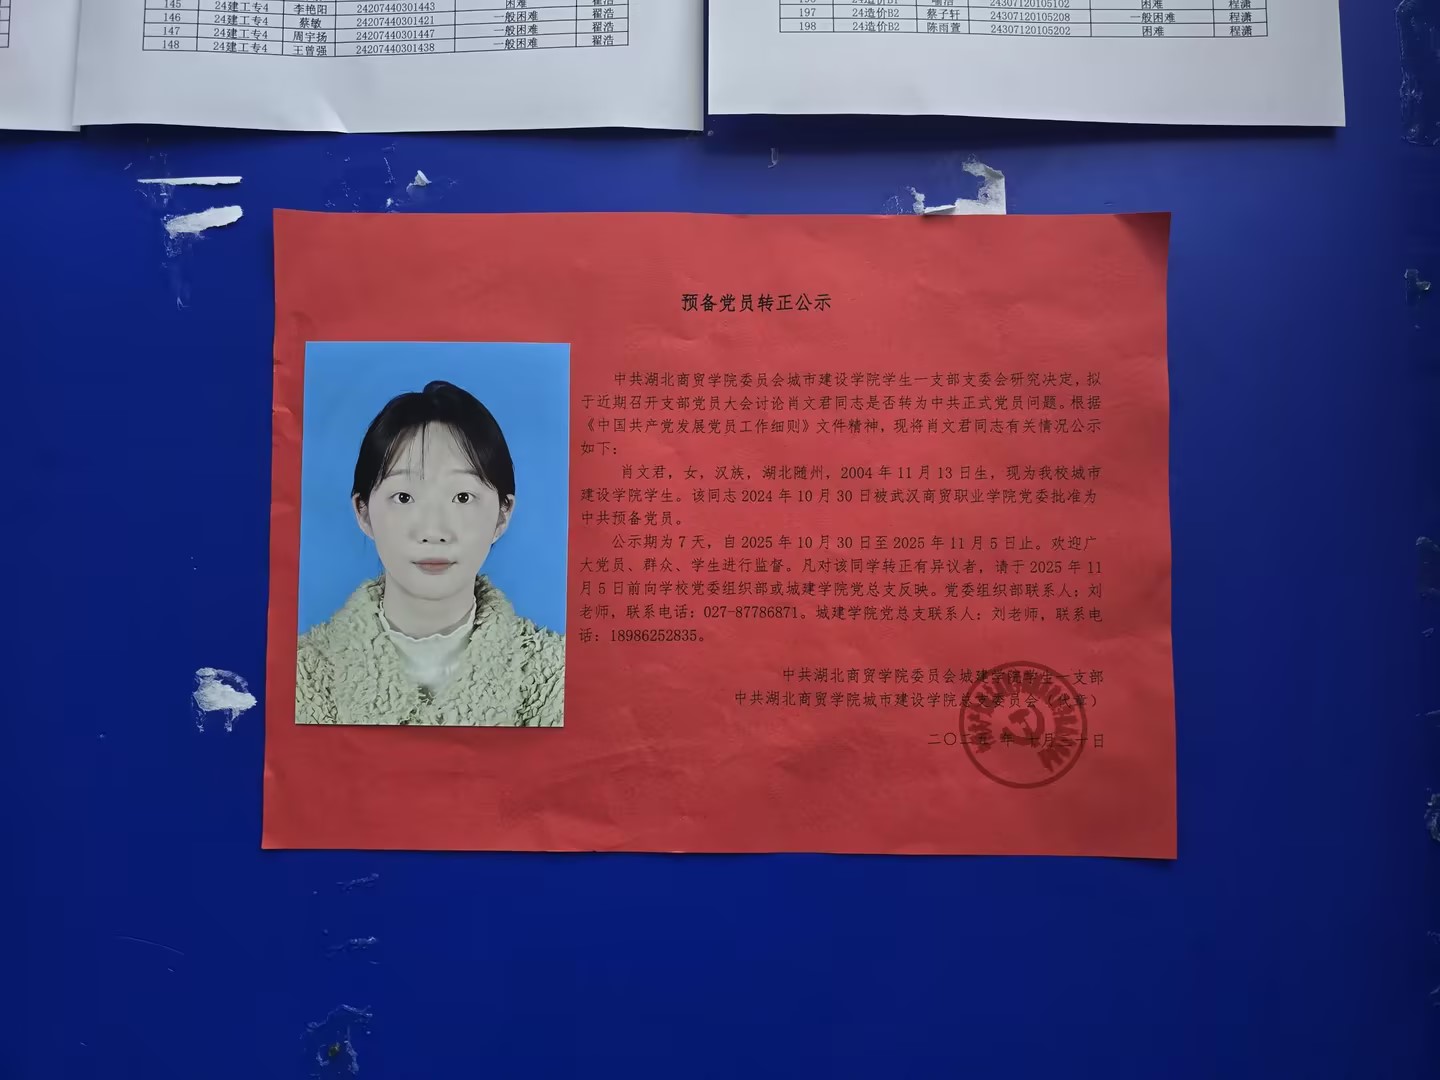 145 24建工专4 李艳阳 24207440301443 困难 翟浩
146 24建工专4 蔡敏 24207440301421 一般困难 翟浩
147 24建工专4 周宇扬 24207440301447 一般困难 翟浩
148 24建工专4 王曾强 24207440301438 一般困难 翟浩
24307120105102 困难 程潇
197 24造价B2 蔡子轩 24307120105208 一般困难 程潇
198 24造价B2 陈雨萱 24307120105202 困难 程潇
预备党员转正公示
中共湖北商贸学院委员会城市建设学院学生一支部支委会研究决定，拟
于近期召开支部党员大会讨论肖文君同志是否转为中共正式党员问题。根据
《中国共产党发展党员工作细则》文件精神，现将肖文君同志有关情况公示
如下：
肖文君，女，汉族，湖北随州，2004年11月13日生，现为我校城市
建设学院学生。该同志2024年10月30日被武汉商贸职业学院党委批准为
中共预备党员。
公示期为7天，自2025年10月30日至2025年11月5日止。欢迎广
大党员、群众、学生进行监督。凡对该同学转正有异议者，请于2025年11
月5日前向学校党委组织部或城建学院党总支反映。党委组织部联系人：刘
老师，联系电话：027-87786871。城建学院党总支联系人：刘老师，联系电
话：18986252835。
中共湖北商贸学院委员会城建学院学生一支部
中共湖北商贸学院城市建设学院总支委员会（代章）
二〇二五年十月三十日